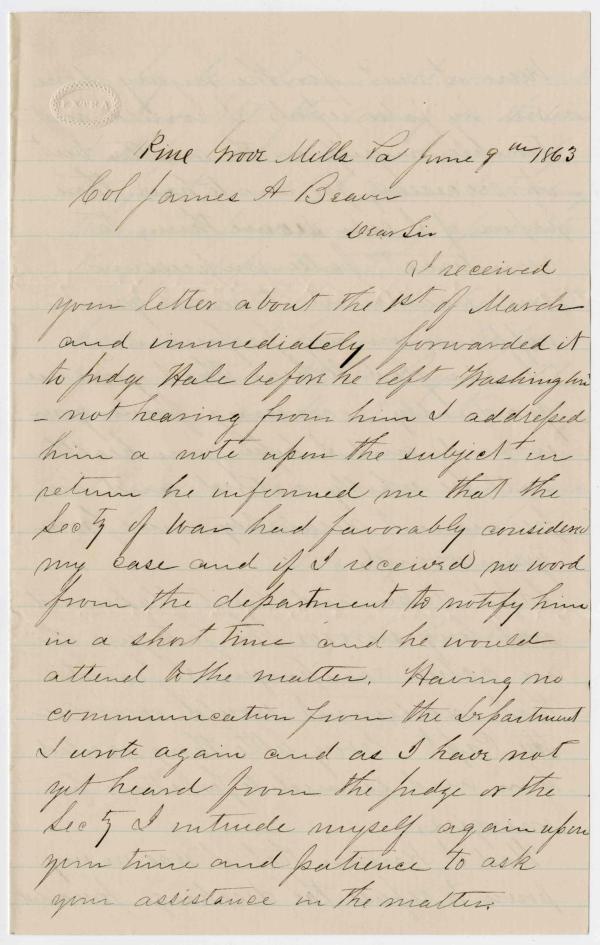 EXTRA
Pine Grove Mills Pa June 9th 1863
Col James A Beaver
Dear Sir
I received
your letter about the 1st of March
and immediately forwarded it
to Judge Hale before he left Washington
- not hearing from him I addressed
him a note upon the subject - in
return he informed me that the
Secty of War had favorably considered
my case and if I received no word
from the department to notify him
in a short time and he would
attend to the matter. Having no
communication from the Department
I wrote again and as I have not
yet heard from the Judge or the
Secty I intrude myself again upon
your time and patience to ask
your assistance in the matter.